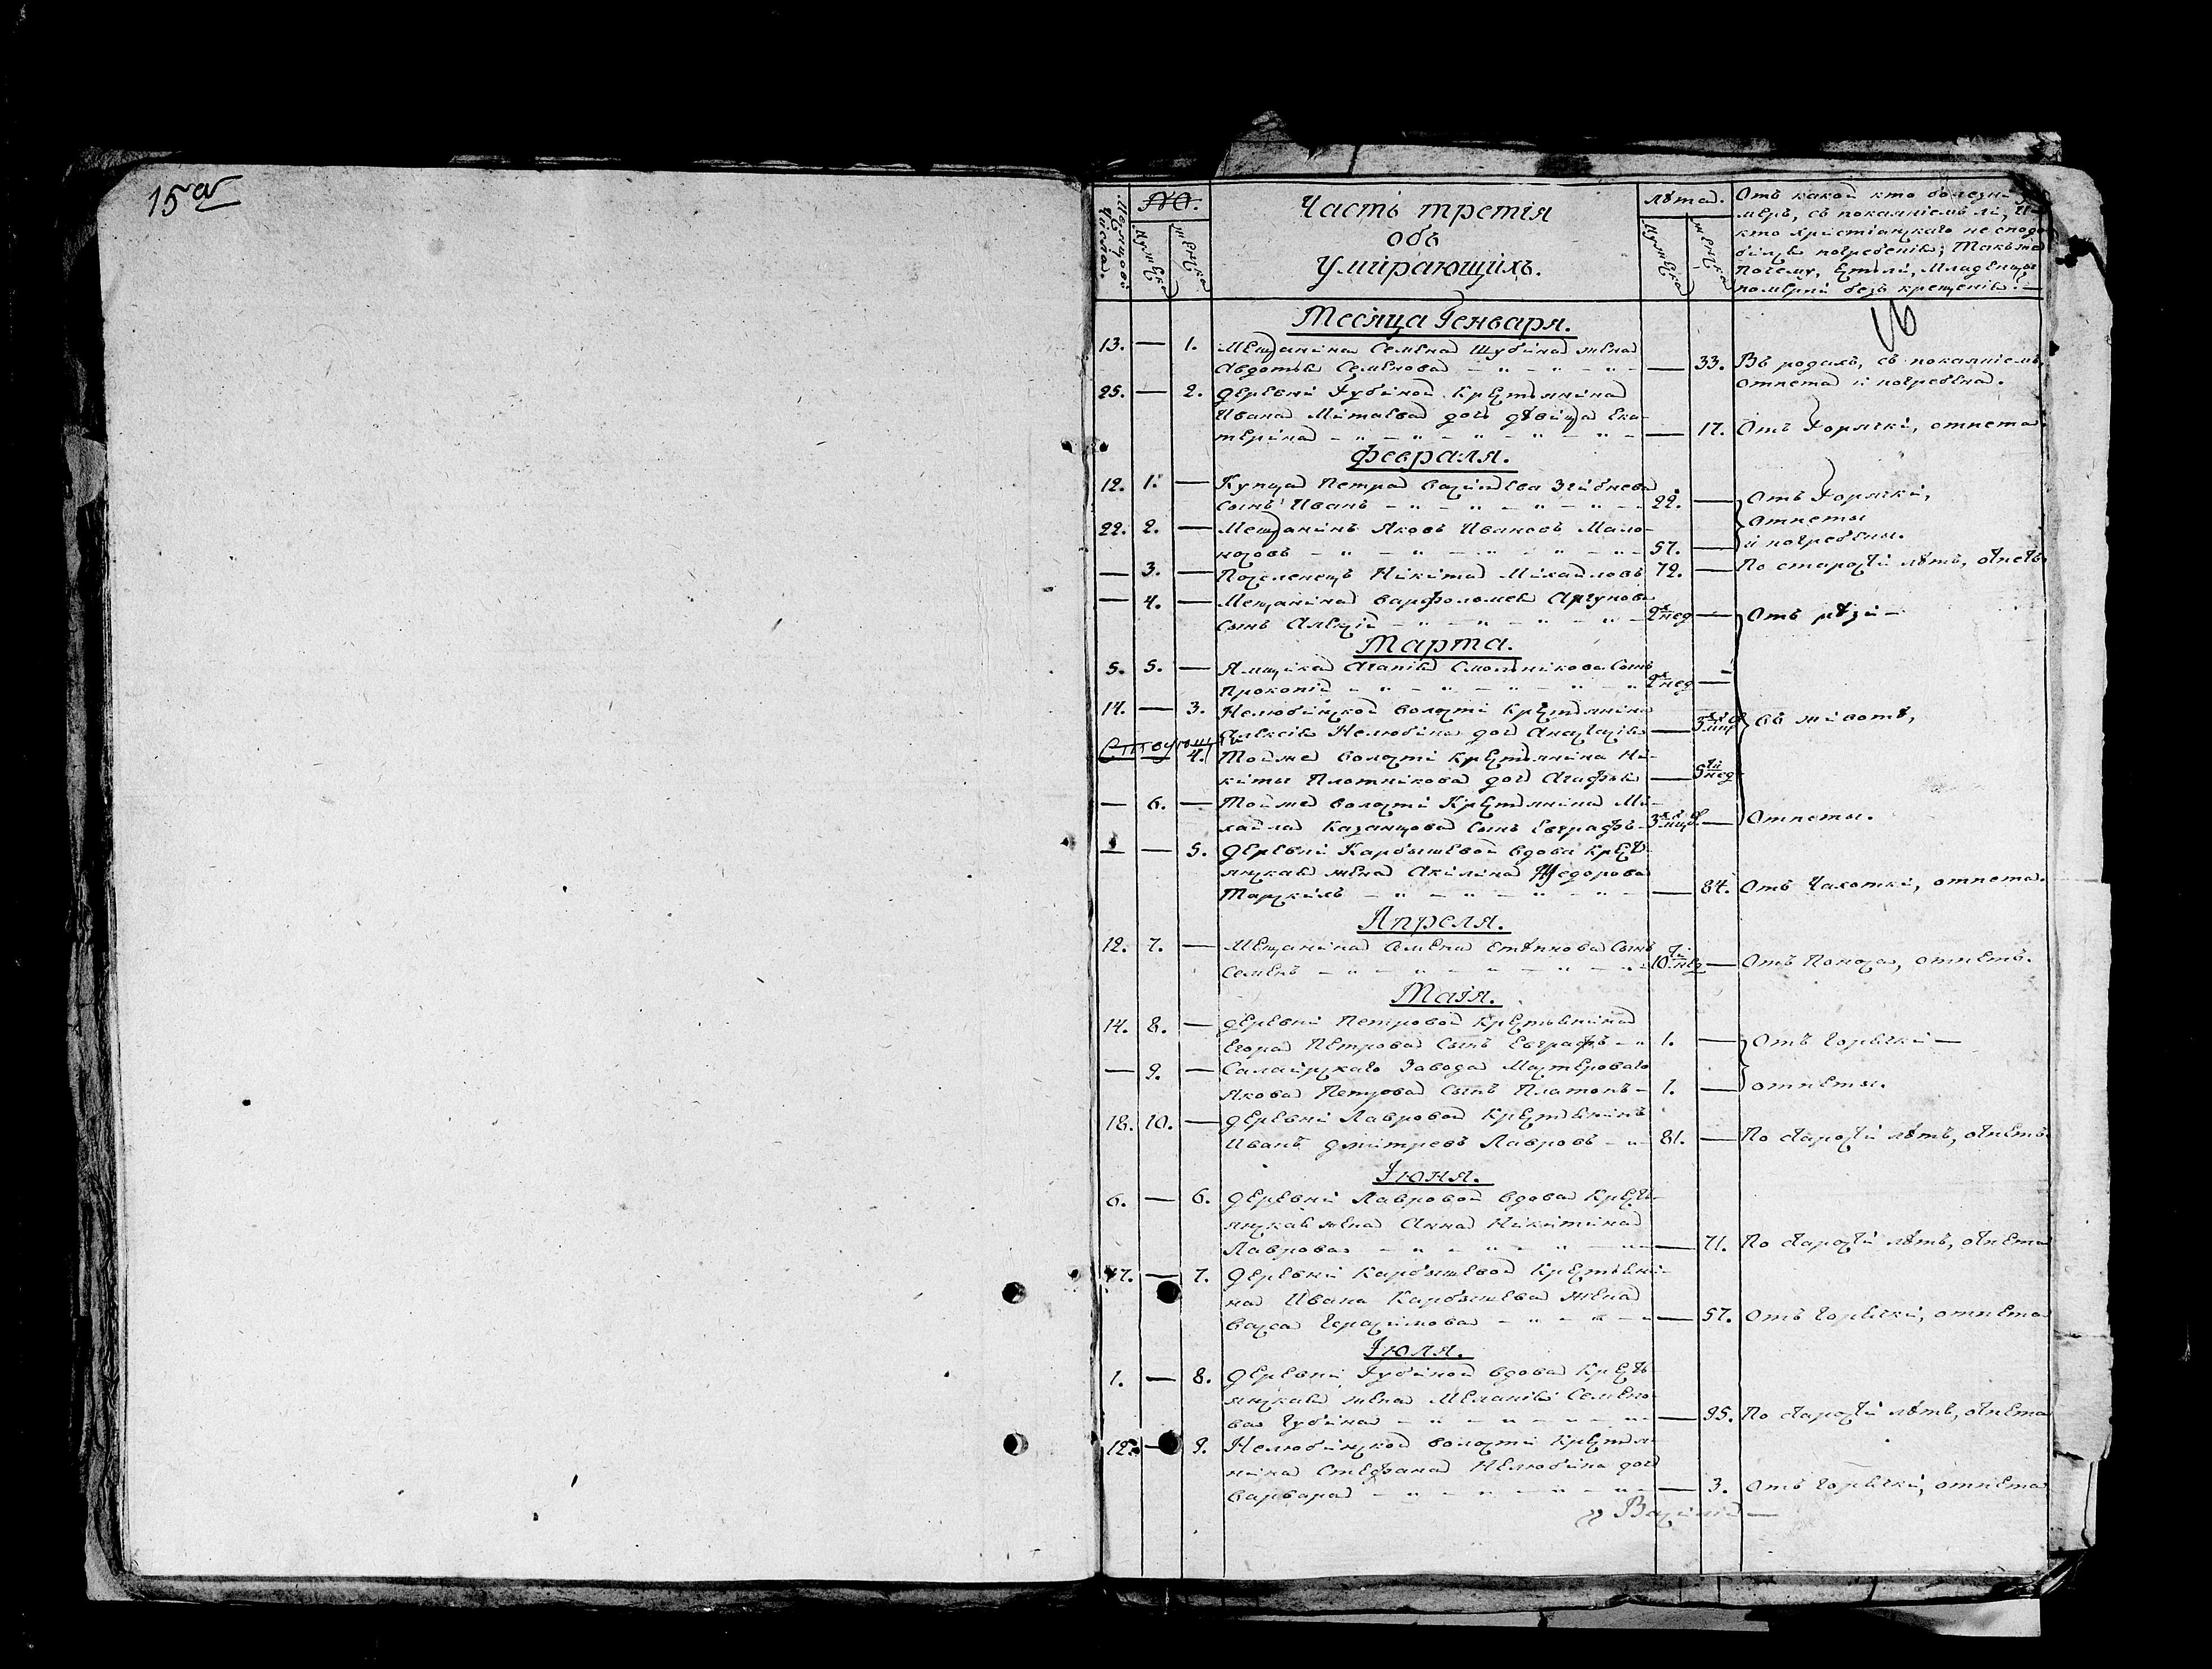 15а
Мѣсяцовой
Числа.
№.
Мужеска
Женска
Часть третія
объ
Умирающихъ.
лѣта.
Мужеска
Женска
Отъ какой кто болезни у-
меръ, съ покаяніемъ ли, и
кто христіанскаго не сподо
бился погребенія; также
почему, Естли, Младенцы
померли безъ крещенія. —
16
Месяца Генваря.
13. — 1. Мещанина Семена Шубина жена
Авдотья Семенова — 33. Въ родахъ, съ покаяніемъ,
отпета и погребена.
25. — 2. деревни Губиной Крестьянина
Ивана Митаева дочь дѣвица Ека-
терина — 17. Отъ Горячки, отпета
Февраля.
12. 1. — Купца Петра Васильева
сынъ Иванъ 22. — Отъ Горячки,
22. 2. — Мещанинъ Яковъ Ивановъ Мало- отпеты
57. — и погребены.
— 3. — Поселенецъ Никита Михайловъ 72. — По старости лѣтъ, отпетъ
— 4. — Мещанина Варфоломея Аргунова
сынъ Алексій 2х нед — Отъ рѣзи —
Марта.
5. 5. — Ямщика Агапія Смольникова Сынъ
Прокопій 2х нед —
14. — 3. Нелюбинской волости Крестьянина
Алексія Нелюбина дочь Анастасія — въ животѣ,
4. Тойже волости Крестьянина Ни-
киты Плотникова дочь Агафья — 5ти нед
— 6. — Тойже волости Крестьянина Ми-
хайла Казанцова Сынъ Евграфъ — Отпеты.
— — 5. деревни Карбышевой вдова крест-
янская жена Акилина Федорова
— 84. Отъ Чахотки, отпета.
Апреля.
12. 7. — Мещанина Семена Сынъ
Семенъ 10ти нед — Отъ Поноса, отпетъ.
Маія.
14. 8. — деревни Петровой Крестьянина
Егора Петрова Сынъ Евграфъ 1. — Отъ Горячки —
— 9. — Салаирскаго Завода Мастероваго
Якова Петрова Сынъ Платонъ 1. — отпеты.
18. 10. — деревни Лавровой Крестьянинъ
Иванъ Дмитревъ Лавровъ 81. — По старости лѣтъ, отпетъ
Іюня.
6. — 6. деревни Лавровой вдова Крест-
янская жена Анна Никитина
Лаврова — 71. По старости лѣтъ, отпета
17. — 7. деревни Карбышевой Крестьяни-
на Ивана Карбышева жена
Васса Герасимова — 57. Отъ Горячки, отпета
Іюля.
1. — 8. деревни Губиной вдова Крестъ
янская жена Меланія Семено
ва Губина — 95. По старости лѣтъ, отпета
12. — 9. Нелюбинской волости Крестья-
нина Стефана Нелюбина дочь
Варвара — 3. Отъ Горячки, отпета
Василій —